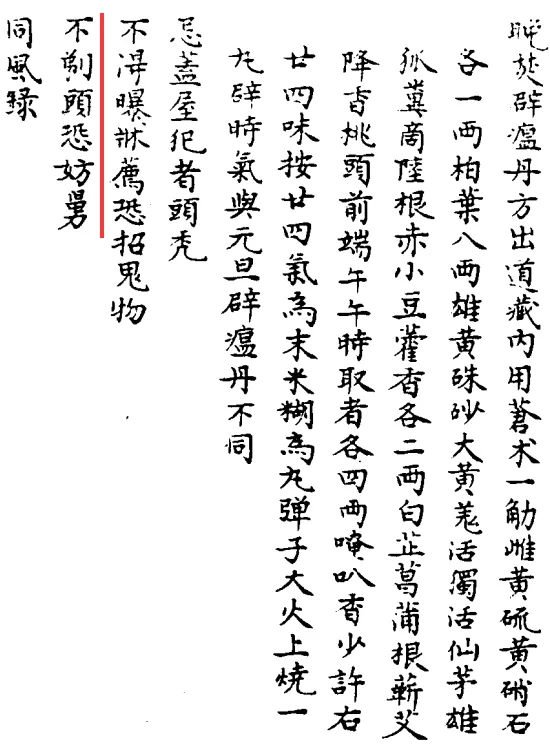 晚焚辟瘟丹方出道藏内用蒼术一觔雌黄硫黄硝石
各一两柏葉八两雄黄硃砂大黄羗活獨活仙茅雄
狐糞商陸根赤小豆藿香各二两白芷菖蒲根蘄艾
降香桃頭前端午午時取者各四两唵叭香少許右
廿四味按廿四氣為末米糊為丸弹子大火上燒一
丸辟時氣與元旦辟瘟丹不同
忌蓋屋犯者頭秃
不淂曝牀薦恐招鬼物
不剃頭恐妨舅
同風録